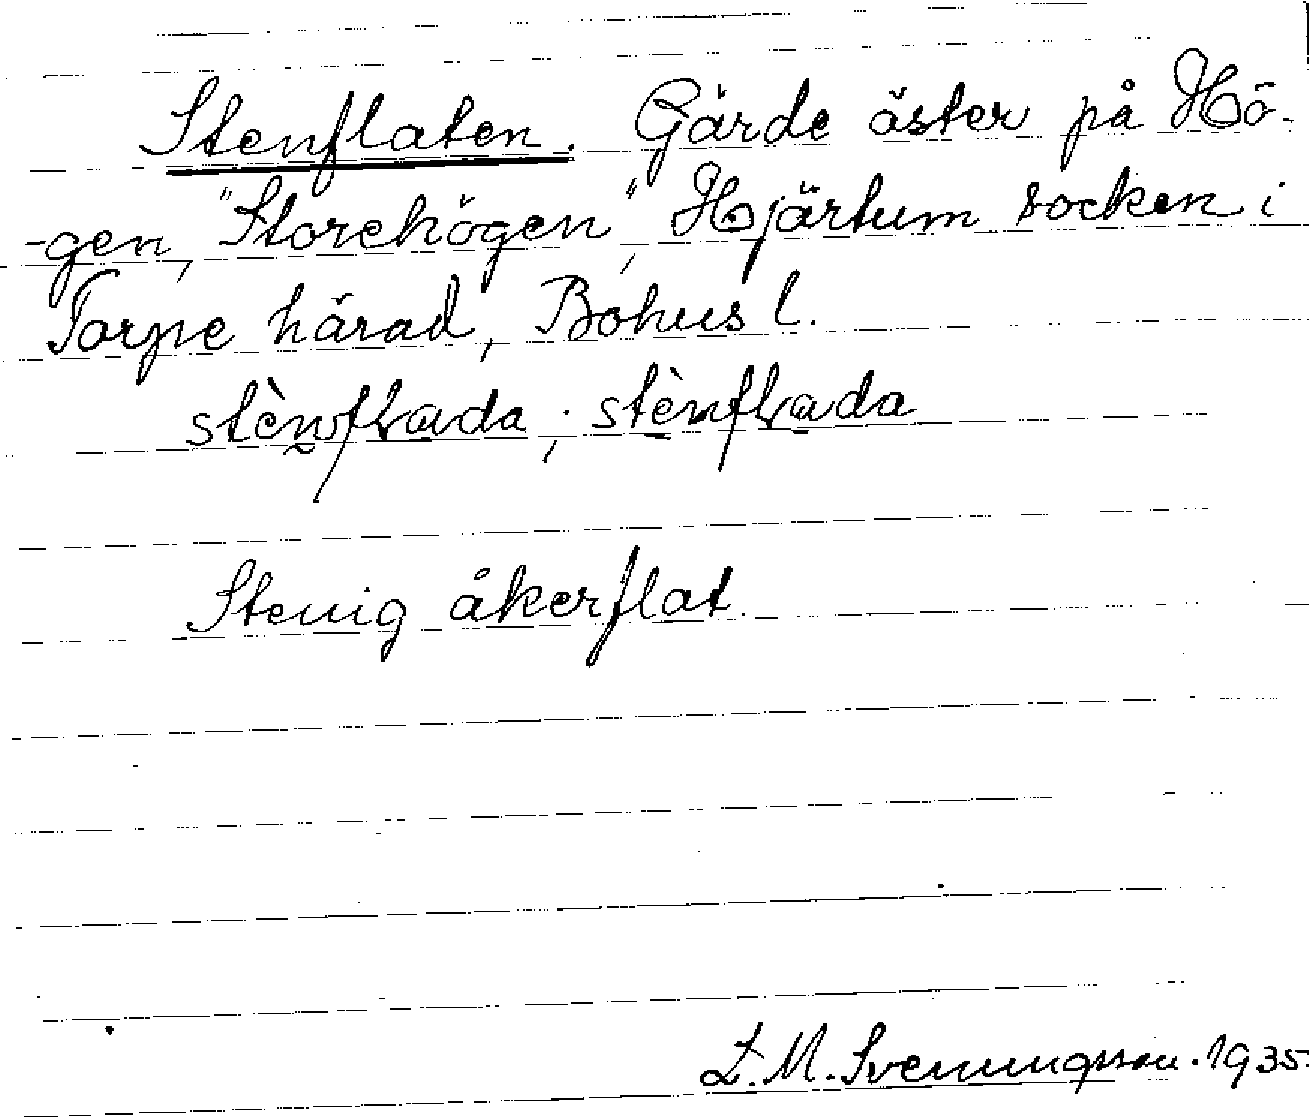 Stenflaten. Gärde öster på Hö-
-gen, "Storehögen", Hjärtum socken i
Torpe härad, Bohusl.
stènflada; stènflada
Stenig åkerflat
L. M. Svenungsson. 1935.